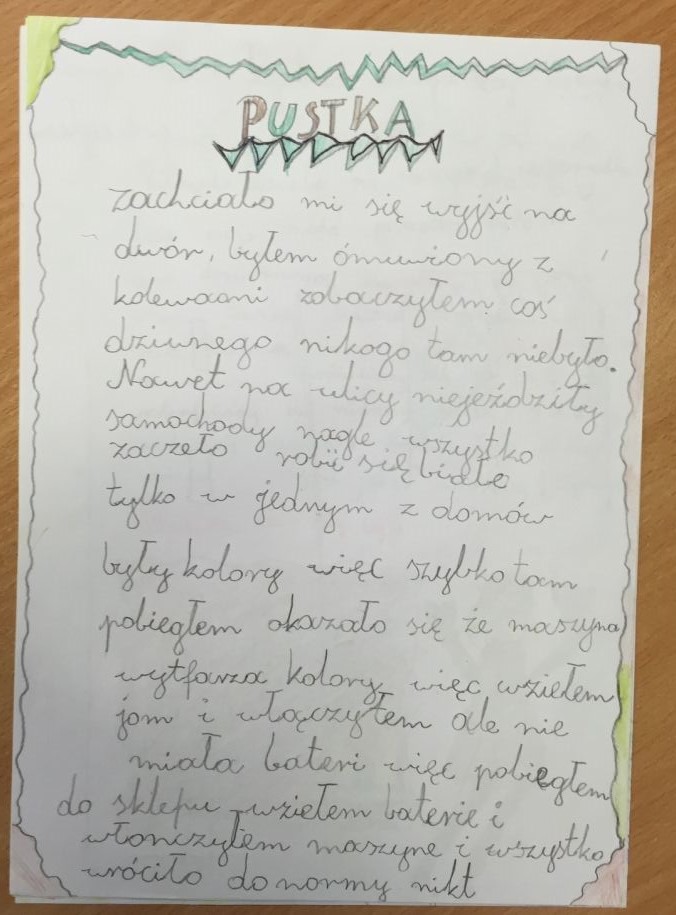 PUSTKA
zachciało mi się wyjść na
dwór, byłem ómuwiony z
kolewaami zobaczyłem coś
dziwnego nikogo tam niebyło.
Nawet na ulicy niejeździły
samochody nagle wszystko
zaczeło robić się białe
tylko w jednym z domów
były kolory więc szybko tam
pobiegłem okazało się że maszyna
wytfarza kolory więc wziełem
jom i włączyłem ale nie
miała bateri więc pobiegłem
do sklepu wziełem baterie i
włonczyłem maszyne i wszystko
wróciło do normy nikt